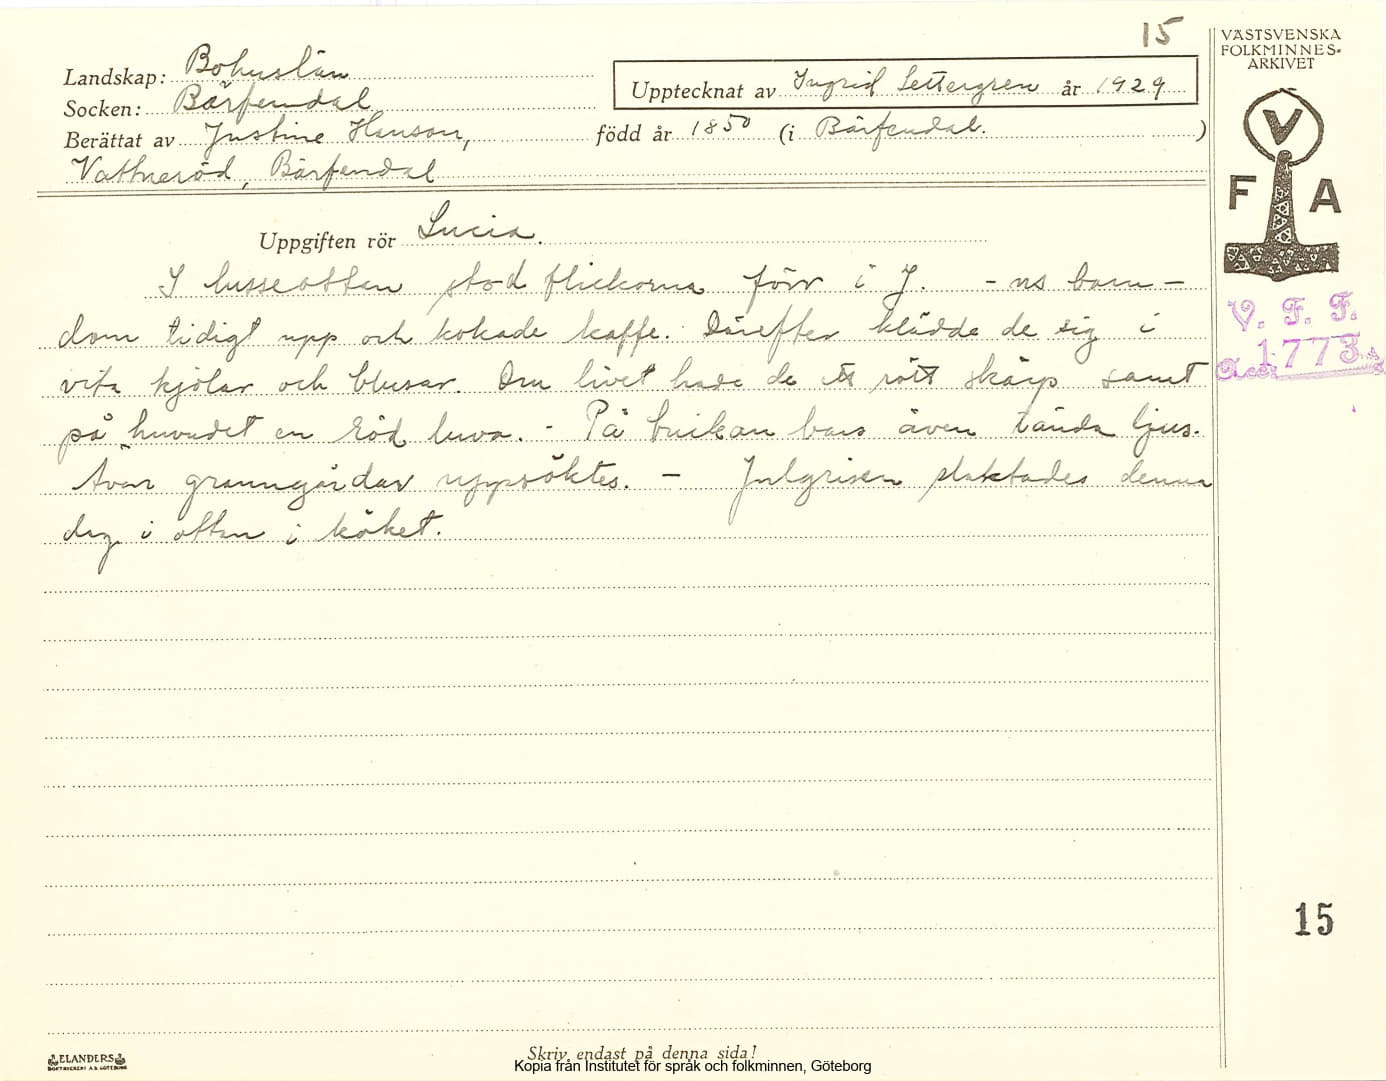 15
Landskap: Bohuslän
Socken: Bärfendal
Upptecknat av Ingrid Settergren år 1929
Berättat av Justine Hanson, född år 1850 (i Bärfendal. )
Vattneröd, Bärfendal
Uppgiften rör Lucia.
I lusseottan stod flickorna förr i J. - ns barn-
dom tidigt upp och kokade kaffe. Därefter klädde de sig i
vita kjolar och blusar. Om livet hade de ett rött skärp samt
på huvudet en röd luva. - På brickan bars även tända ljus.
Även granngårdar uppsöktes. - Julgrisen slaktades denna
dag i ottan i köket.
VÄSTSVENSKA
FOLKMINNES-
ARKIVET
V
F A
V. F. F.
Acc. 1773
15
ELANDERS
BOKTRYCKERI A.B. GÖTEBORG
Skriv endast på denna sida!
Kopia från Institutet för språk och folkminnen, Göteborg